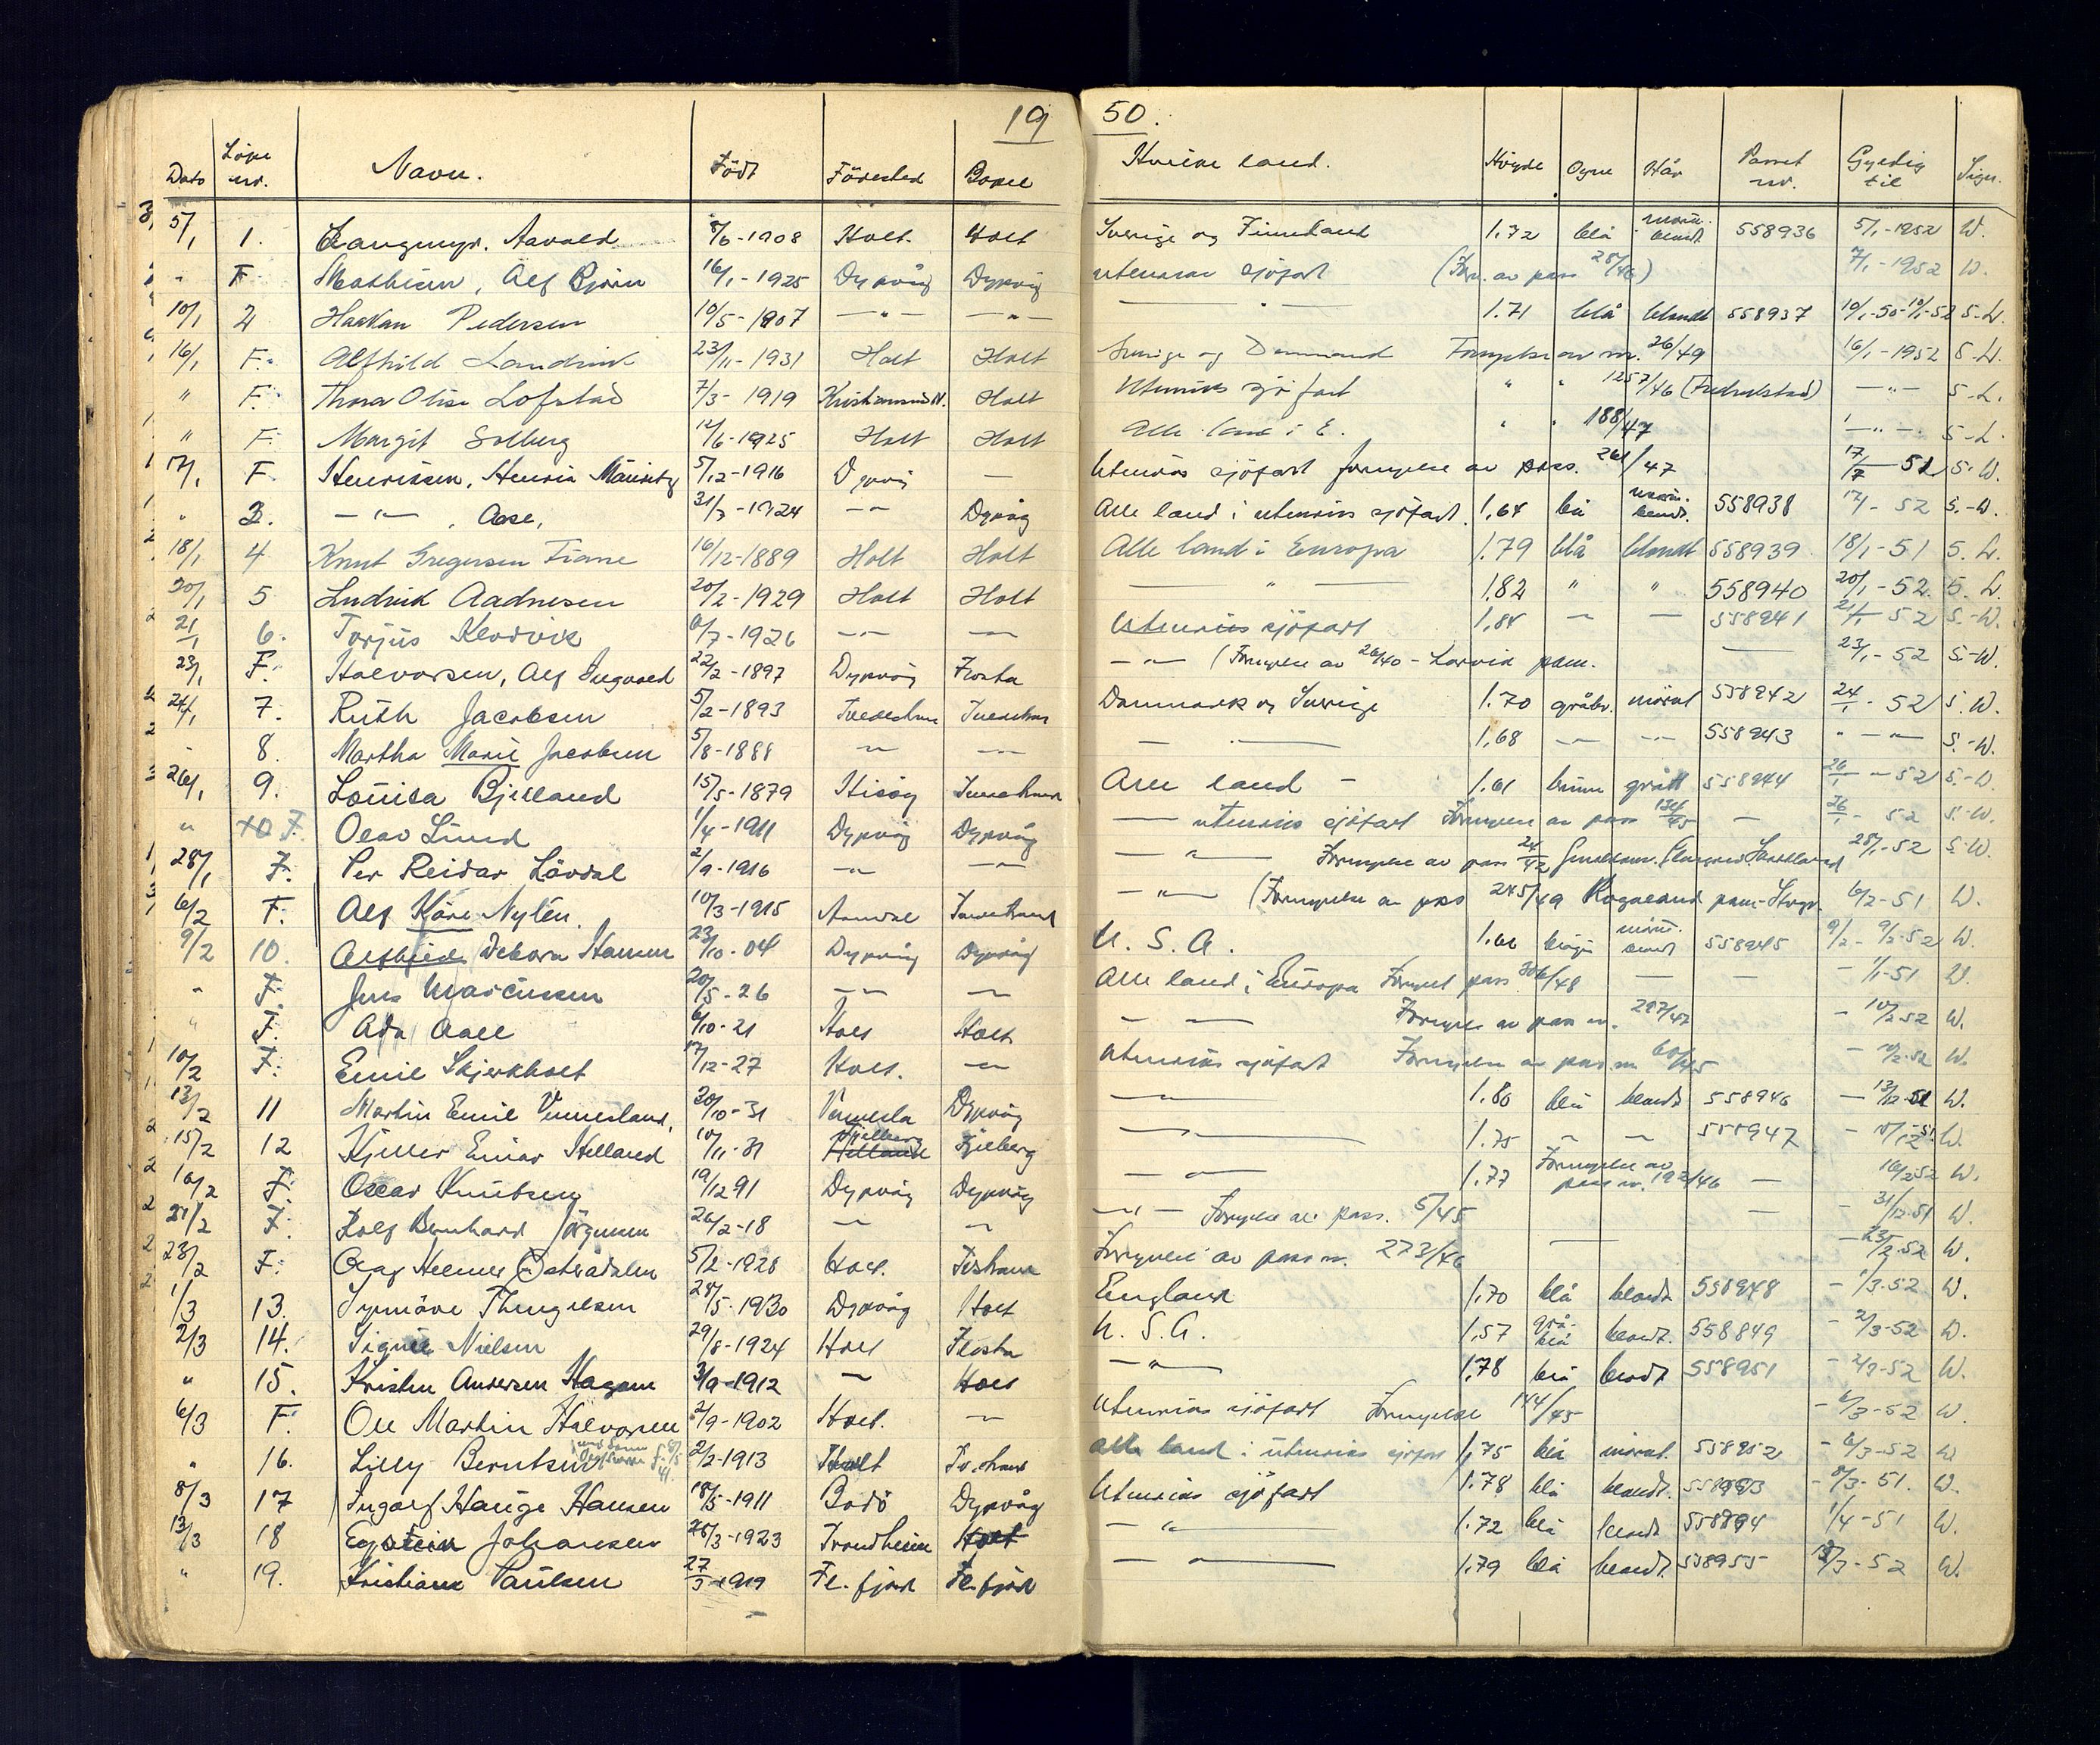 19 50.
Dato Löpe nr. Navn. Födt Födested Bopel Hvilke land. Höyde Öyne Hår Passet nr. Gyldig til Sign.
5/1 1. Langmyr. Aavald 8/6-1908 Holt. Holt Sverige og Finnland 1.72 blå mörk. blondt 558936 5/1-1952 W.
" F. Mathisen, Alf Björn 16/1-1925 Dypvåg Dypvåg utenriks sjöfart (Forn. av pass 28/46) 7/1-1952 W.
10/1 2 Haakan Pedersen 10/5-1907 —"— —"— —"— 1.71 blå blondt 558937 10/1-50-10/1-52 S-W.
16/1 F. Alfhild Landvik 23/11-1931 Holt Holt Sverige og Danmark Fornyelse av nr. 26/49 16/1-1952 S-W.
" F. Thora Olise Lofstad 7/3-1919 Kristiansund N. Holt Utenriks sjöfart " " 1257/46 (Fredrikstad) —"— S-L.
" F. Margit Solberg 12/6-1925 Holt Holt Alle land i E. " " 188/47 —"— S-L.
17/1 F. Henriksen, Henrik Mauritz 5/12-1916 Dypvåg — Utenriks sjöfart fornyelse av pass. 261/47 17/7 51 S.W.
" 3. —"— , Aase, 31/3-1924 —"— Dypvåg Alle land i utenriks sjöfart. 1,64 blå mörk. blondt. 558938 17/1-52 S.-W.
18/1 4 Knut Gregersen Fiane 16/12-1889 Holt Holt Alle land i Europa 1.79 blå blondt 558939 18/1-51 S. W.
20/1 5 Ludvik Aadnesen 20/2-1929 Holt Holt —"— 1.82 " " 558940 20/1-52. S. W.
21/1 6. Torjus Kleivvik 6/7-1926 —"— —"— Utenriks sjöfart 1,84 — — 558941 21/1 52 S.-W.
23/1 F. Halvorsen, Alf Ingvald 22/2-1897 Dypvåg Flosta —"— (Fornyelse av 26/40 - Larvik pkm. — 23/1-52 S-W.
24/1 7. Ruth Jacobsen 5/2-1893 Tvedestran Tvedestran Danmark og Sverige 1.70 gråbr. mörkt 558942 24/1-52 S.W.
" 8. Martha Marie Jacobsen 5/8-1888 —"— —"— —"— 1,68 —"— —"— 558943 "—"— S.-W.
26/1 9. Louisa Bjelland 15/5-1879 Hisöy Tvedestrand Alle land — 1.61 brune grått 558944 26/1 - 52 S.-W.
" F. Olav Lund 1/4-1911 Dypvåg Dypvåg — utenriks sjöfart Fornyelse av pass 134/45 — 26/1-52 S.-W.
28/1 F. Per Reidar Lövdal 2/9-1916 —"— —"— —"— Fornyelse av pass 24/42 28/1-52 S-W.
6/2 F. Alf Kåre Nylén. 10/3-1915 Arendal Tvedestrand —"— (Fornyelse av pass 245/49 Rogaland pkm-Stvgr. 6/2-51 W.
9/2 10. Alfhild Debora Hansen 23/10-04 Dypvåg Dypvåg U. S. A. 1.61 mörk. blondt 558945 9/2-9/2-52 W.
" F. Jens Marcussen 20/5-26 —"— —"— Alle land i Europa Fornyet pass 306/48 — — - 1/1-51 W.
" F. Ada Aall 6/10-21 Holt Holt —"— Fornyelse av pass nr. 297/47 - 10/2-52 W.
10/2 F. Emil Skjerkholt 17/12-27 Holt. —"— Utenriks sjöfart Fornyelse av pass nr. 60/45 - 10/2-52 W.
13/2 11 Martin Emil Vennesland, 20/10-31 Vennesla Dypvåg —"— 1.80 blå blondt 558946 - 13/12-51 W.
15/2 12 Kjeller Einar Helland 10/11-31 Gjelberg Gjelberg —"— 1.75 — — 558947 - 15/12-51 W.
16/2 F. Oscar Knutsen 19/12 91 Dypvåg Dypvåg —"— 1.77 Fornyelse av pass nr. 192/46 — 16/2 52 W.
21/2 F. Rolf Bernhard Jörgensen 26/2-18 —"— —"— —"— Fornyelse av pass. 5/45 — - 31/12-51 W.
23/2 F. Olaf Helmer Österdalen 5/2-1928 Holt. T.strand Fornyelse av pass nr. 273/46 — - 23/2-52 W.
1/3 13. Synnöve Thengelsen 28/5-1930 Dypvåg Holt England 1,70 blå blondt 558948 - 1/3-52 W.
2/3 14. Signe Nielsen 29/8-1924 Holt Flosta U. S. A. 1,57 grå-blå blondt. 558849 - 2/3-52 W.
" 15. Kristen Andersen Hagane 3/9-1912 — Holt —"— 1,78 blå blondt 558951 - 2/3-52 W.
6/3 F. Ole Martin Halvorsen 2/9-1902 Holt. —"— Utenriks sjöfart Fornyelse 144/45 - 6/3-52 W.
" 16. Lilly Berntsen 2/2-1913 Holt Tv.strand alle land i utenriks sjöfart 1,75 blå mörkt. 558952 - 6/3-52 W
8/3 17 Ingolf Hauge Hansen 18/5-1911 Bodö Dypvåg Utenriks sjöfart 1.78 blå blondt. 558953 - 8/3-51. W.
13/3 18 Eystein Johansen 26/3-1923 Trondheim Holt —"— 1.72 blå blondt. 558954 1/4-51 W.
" 19. Kristiane Paulsen 27/5-1919 Fl.fjord Fl.fjord —"— 1.79 blå blondt. 558955 13/3-52 W.